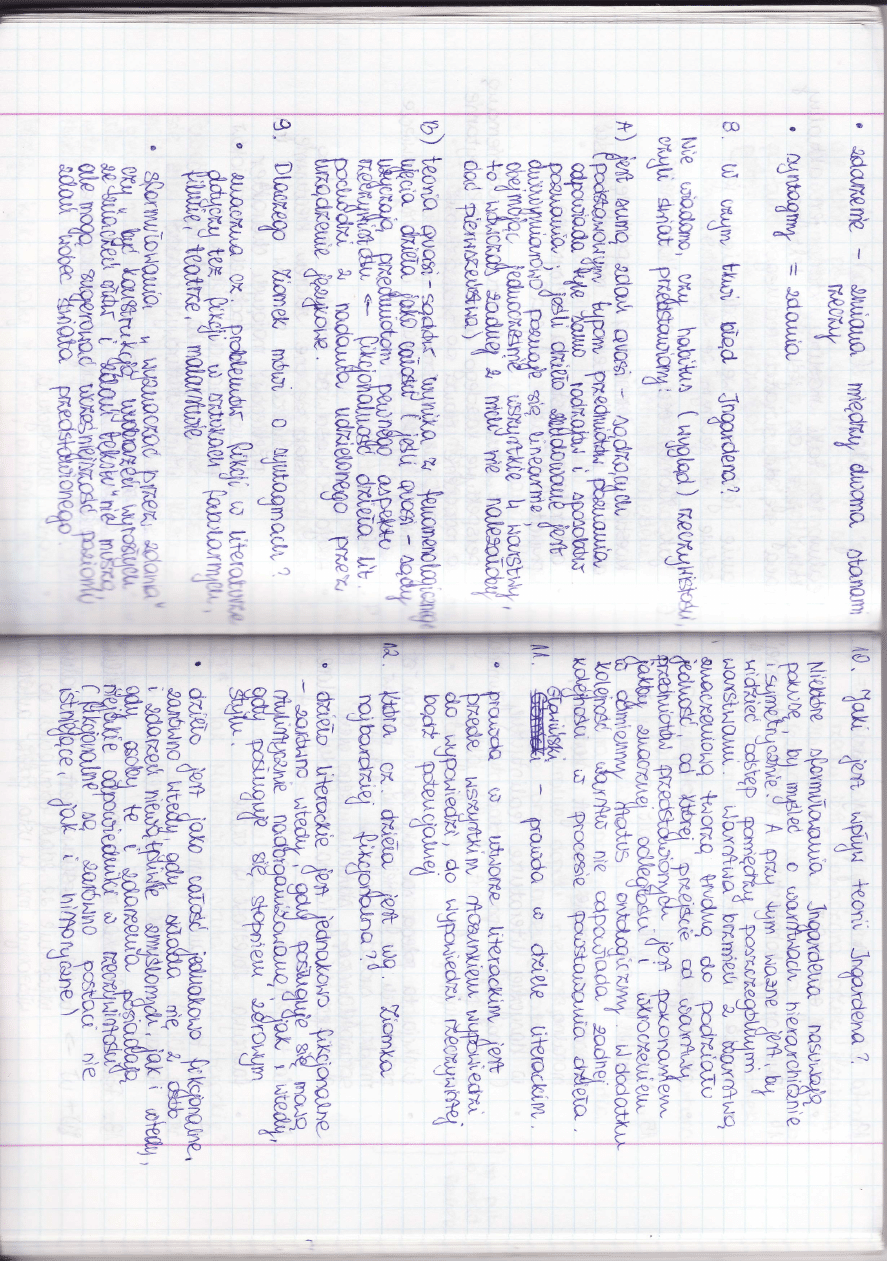 • zdarzenie – zmiana między dwoma stanami
rzeczy
• syntagmy = zdania
8. W czym tkwi błąd Ingardena?
Nie wiadomo, czy habitus (wygląd) rzeczywistości,
czyli świat przedstawiony:
A) jest sumą zdań quasi-sądzących
(podstawowym typom przedmiotów poznania
odpowiada tyle samo rodzajów i sposobów
poznania; jeśli dzieło zbudowane jest
dwuwymiarowo poznaje się linearnie,
obejmując jednocześnie wszystkie 4 warstwy,
to wówczas żadnej z miar nie należałoby
dać pierwszeństwa)
B) teoria quasi-sądów wynika z fenomenologicznego
ujęcia dzieła jako całości (jeśli quasi-sądy
użyczają przedmiotom pewnego aspektu
rzeczywistości ← fikcjonalność dzieła lit.
pochodzi z nadania udzielonego przez
urządzenie językowe.
9. Dlaczego Ziomek mówi o syntagmach?
• znaczna cz. problemów fikcji w literaturze
dotyczy też fikcji w sztukach fabularnych,
filmie, teatrze, malarstwie
• sformułowania „wyznaczać przez zdania"
czy „być konstrukcją wyobrażeń wyrosłych
ze znaczeń zdań i zdań tekstu" nie muszą,
ale mogą sugerować wcześniejszość poziomu
zdań wobec świata przedstawionego
10. Jaki jest wpływ teorii Ingardena?
Niektóre sformułowania Ingardena nasuwają
pokusę, by myśleć o warstwach hierarchicznie
i symetrycznie. A przy tym ważne jest, by
widzieć odstęp pomiędzy poszczególnymi
warstwami. Warstwa brzmień z warstwą
znaczeniową tworzą trudną do podziału
jedność, od której przejście do warstwy
przedmiotów przedstawionych jest pokonaniem
jakby znacznej odległości i wkroczeniem
w odmienny status ontologiczny. W dodatku
kolejność warstw nie odpowiada żadnej
kolejności w procesie powstawania dzieła.
11. Sławiński – prawda w dziele literackim.
• prawda w utworze literackim jest
przede wszystkim stosunkiem wypowiedzi
do wypowiedzi, do wypowiedzi rzeczywistej
bądź potencjalnej
12. Która cz. dzieła jest wg Ziomka
najbardziej fikcjonalna?
• dzieło literackie jest jednakowo fikcjonalne
– zarówno wtedy, gdy posługuje się mową
artystycznie nadorganizowaną, jak i wtedy,
gdy posługuje się stopniem zerowym
stylu.
• dzieło jest jako całość jednakowo fikcjonalne,
zarówno wtedy, gdy składa się z osób
i zdarzeń niewątpliwie zmyślonych, jak i wtedy,
gdy osoby te i zdarzenia posiadają
niejakie odpowiedniki w rzeczywistości
(fikcjonalne są zarówno postaci nie
istniejące, jak i historyczne)